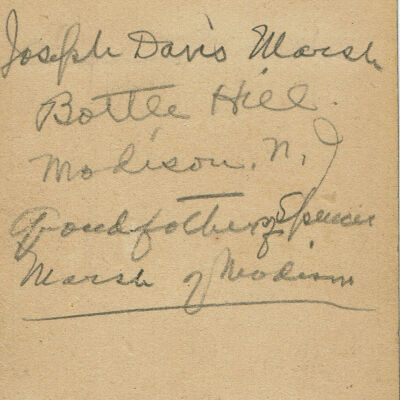 Joseph Davis Marsh
Bottle Hill.
Madison. N. J
Grandfather of Spencer
Marsh of Madison